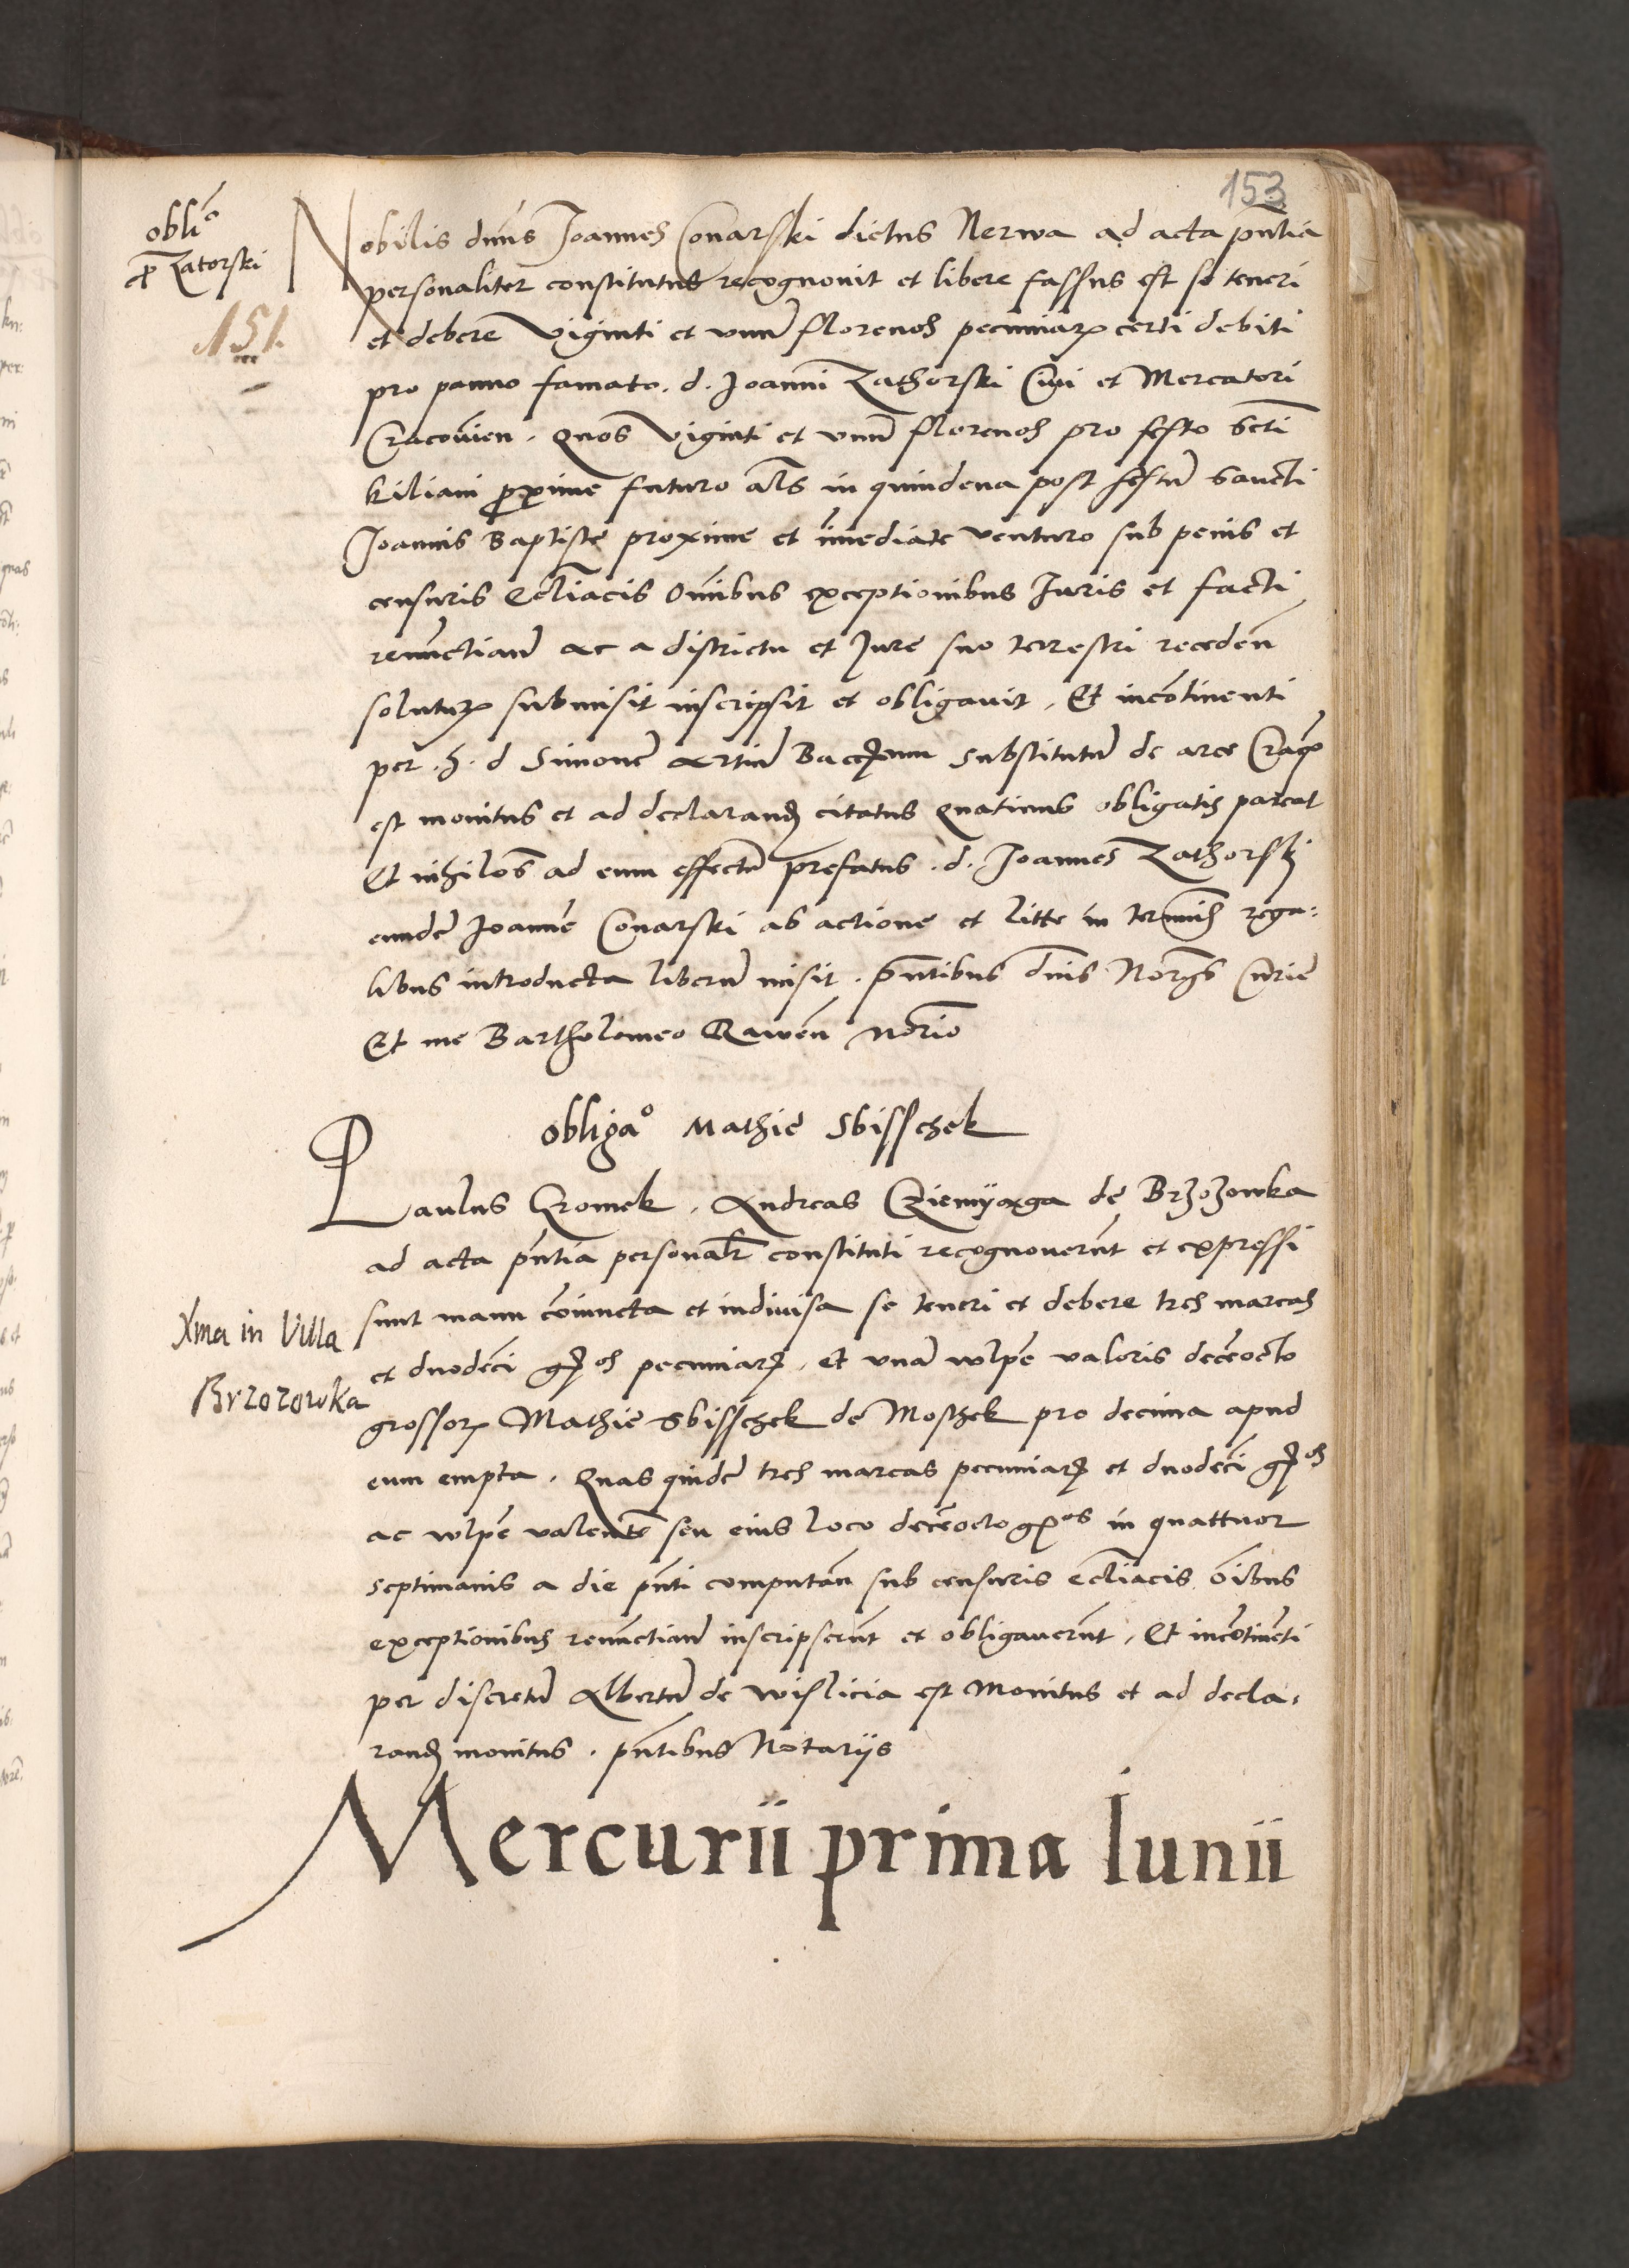 153
obli(o)
p(ro) Zatorski
151.
Nobilis dn̄us Joannes Conarski dictus Nerwa ad acta pn̄tia
personaliter constitutus recognouit et libere fassus est se teneri
et debere viginti et vnū florenos pecuniarꝫ certi debiti
pro panno famato. d. Joanni Zathorski Ciui et Mercatori
Cracouien. Quos viginti et vnū florenos pro festo scti
kiliani proxime futuro als in quindena post festū sancti
Joannis Baptiste proxime et īmediate venturo sub penis et
censuris Ecclīacis Om̄ibus exceptionibus Iuris et facti
renūctiand̄ ac a districtu et Jure suo terrestri receden̄
soluturꝫ submisit inscripsit et obligauit, Et incōtinenti
per .h. d Simonē Artiū Bacc̄eum substitutū de arce Crac̄
est monitus et ad declarandꝫ citatus quatinus obligatis pareat
Et nihilo(s) ad eum effectū prefatus. d. Joannes Zathorski
eundē Joannē Conarski ab actione et litte in terminis rega:
libus introducta liberū misit. pn̄tibus dn̄is Nor̄ys Curie
Et me Bartholomeo Gawen̄ Nor̄io
obligaº Mathie Sbisschek
Paulus Cromek, Andreas Cziemyąga de Brzozowka
ad acta pn̄tia personalr̄ constituti recognouerūt et expressi
sunt manu cōiuncta et indiuisa se teneri et debere tres marcas
Xma in Villa
Brzozowka
et duodeci gr̄os pecuniarꝫ, et vnā wlpē valoris decēocto
grossorꝫ Mathie Sbisschek de Moshek pro decima apud
eum empta. Quas quidē tres marcas pecuniarꝫ et duodeci gr̄os
ac wlpē valentē seu eius loco decēocto gr̄os in quattuor
septimanis a die pn̄ti computan̄ sub censuris ecclīacis oībus
exceptionibus renūctiand̄ inscripserūt et obligauerūt, Et incōtinēti
per discretū Albertū de wislicia est monitus et ad decla,
randꝫ monitus. pn̄tibus Notariis
Mercurii prima Iunii